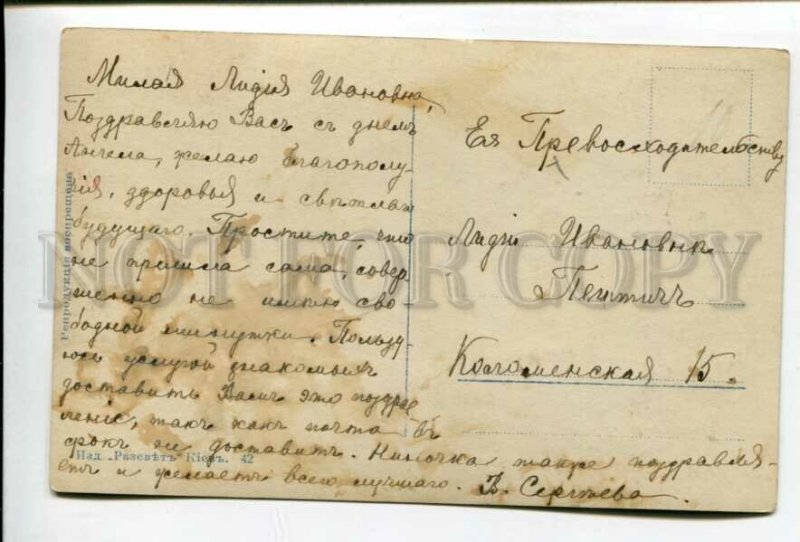 Милая Лидия Ивановна,
Поздравляю Васъ съ днемъ
Ангела, желаю благополу-
чія, здоровья и свѣтлаго
будущаго. Простите, что
не пришла сама, совер
шенно не имѣю сво
бодной минутки. Пользу
юсь услугой знакомыхъ
доставить Вамъ это поздрав
леніе, такъ какъ почта въ
срокъ не доставитъ. Ниночка также поздравля-
етъ и желаетъ всего лучшаго. В. Сергѣева.
Ея Превосходительству
Лидіи Ивановнѣ
Коломенская 15.
Репродукція воспрещена
Изд. „Разсвѣтъ" Кіевъ. 42
NOT FOR COPY